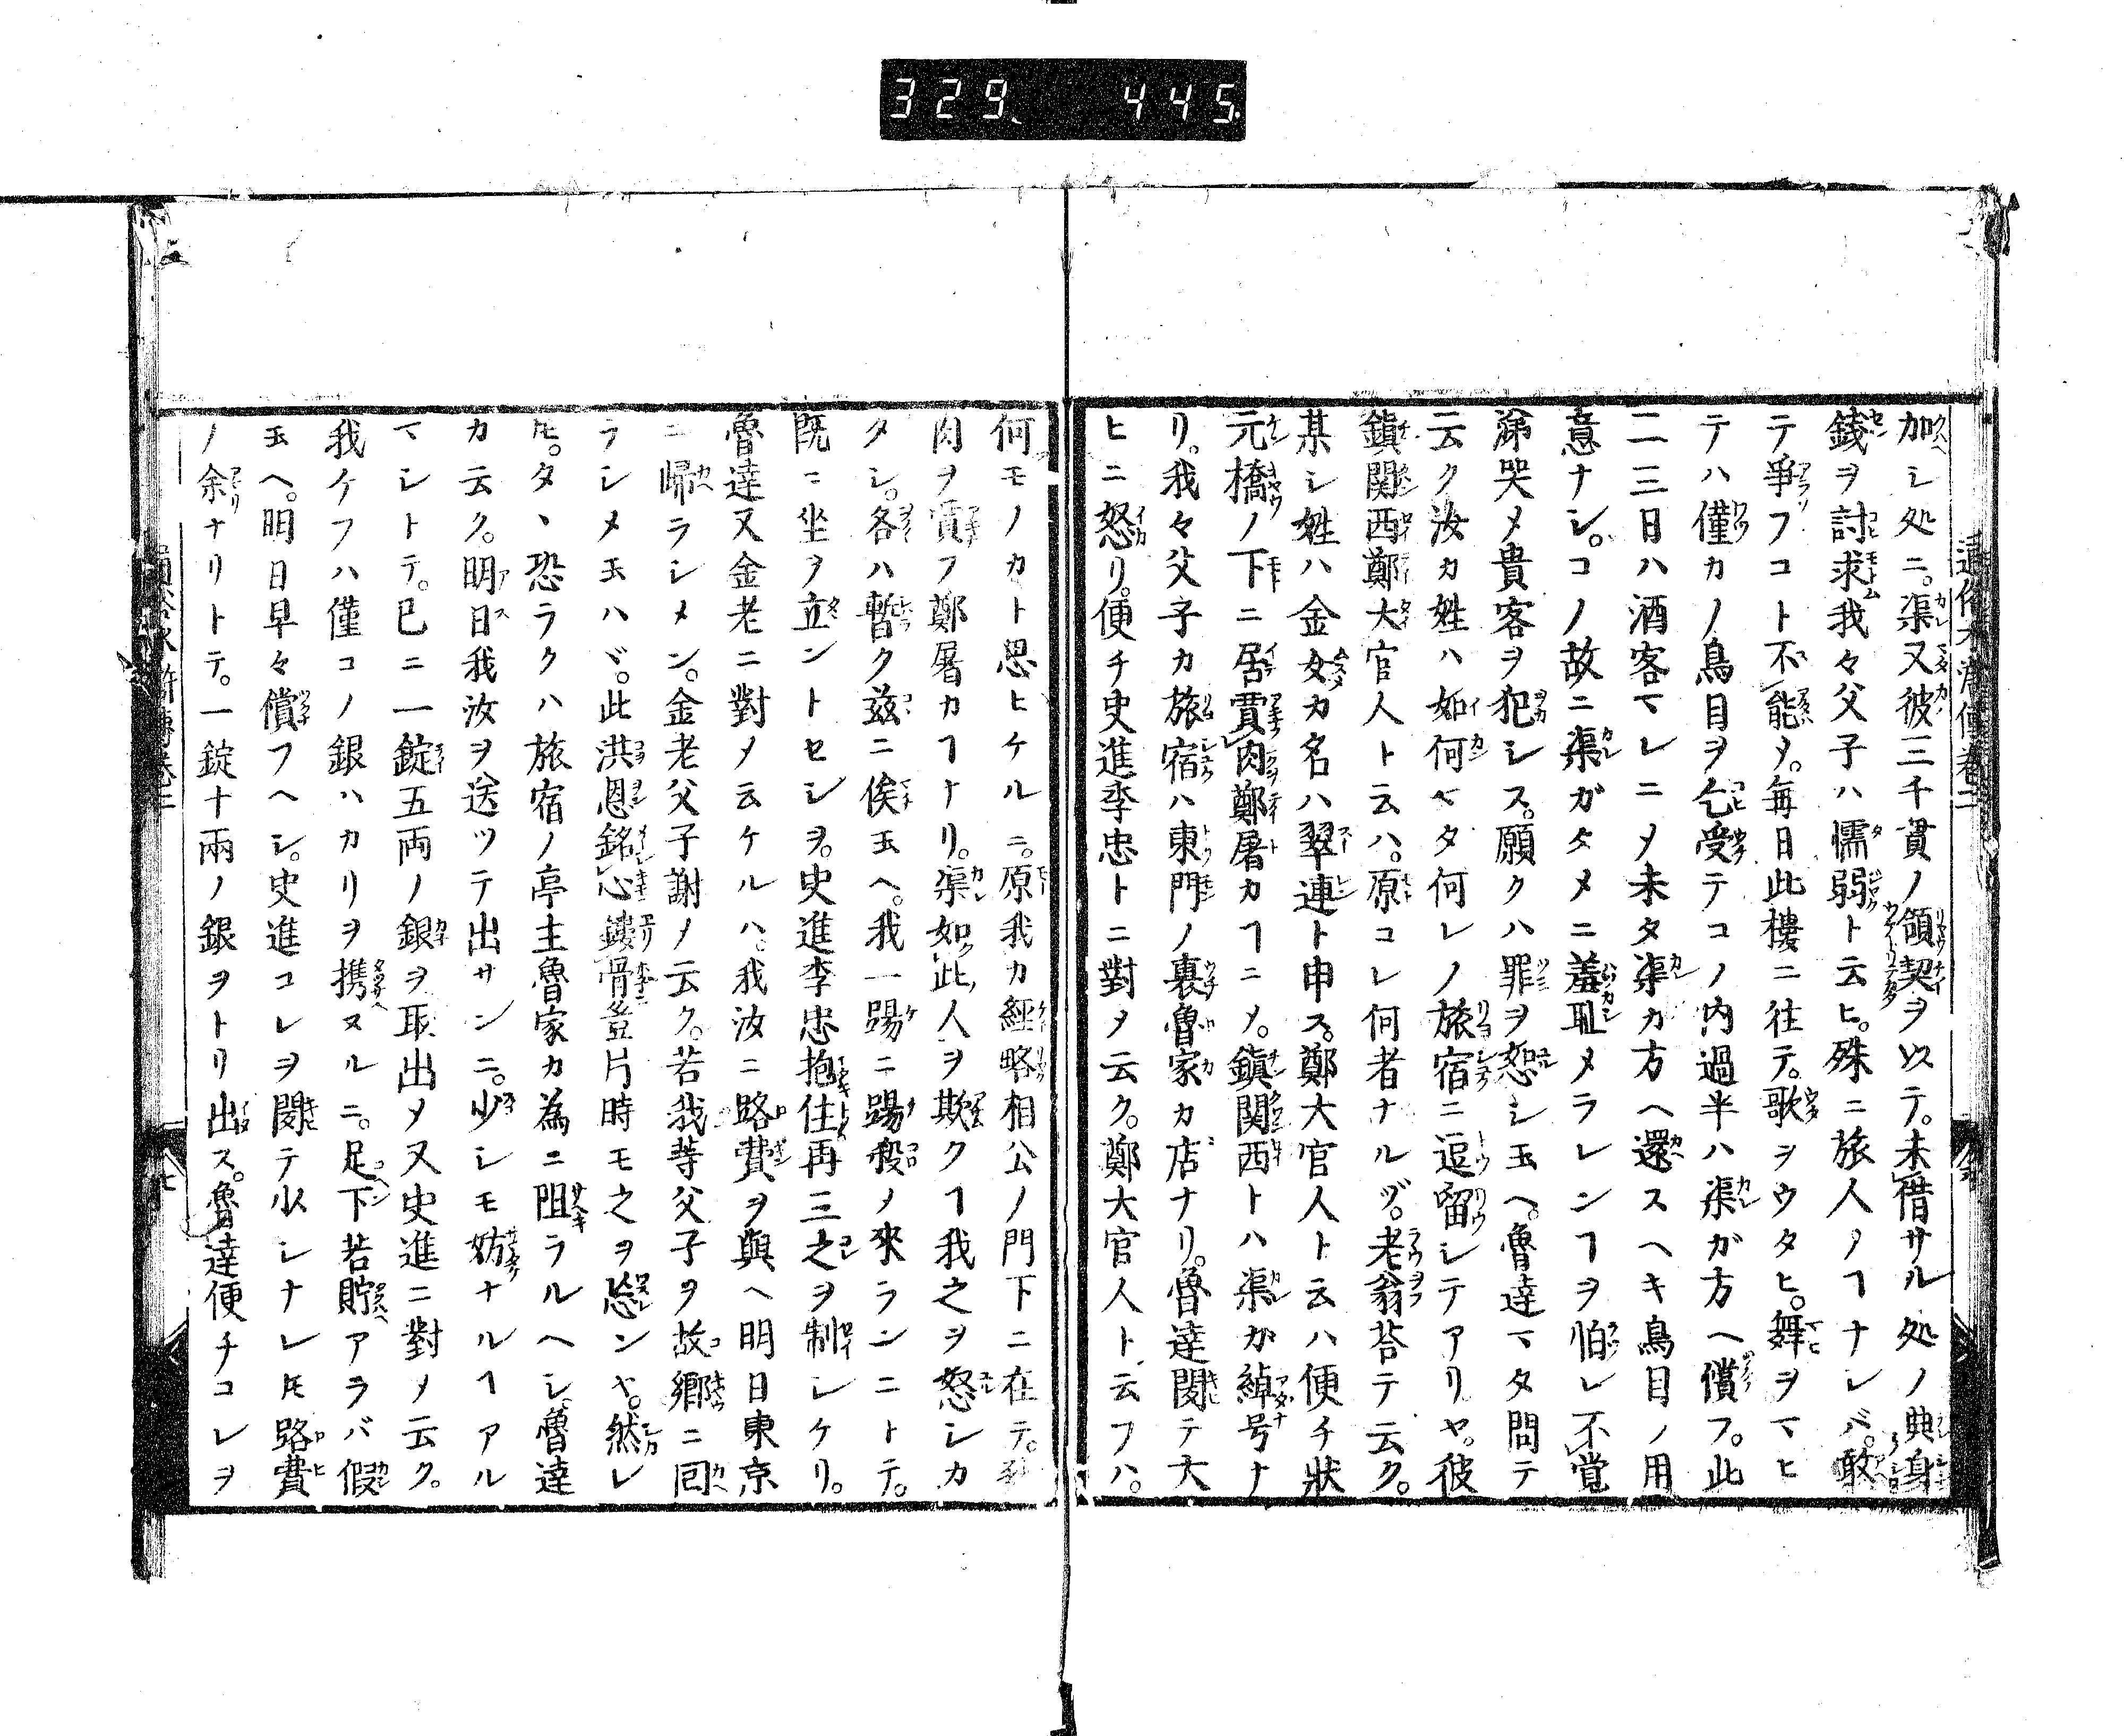 329 445
加シ処ニ。渠又彼三千貫ノ領契ヲ以テ。未借サル処ノ典身
銭ヲ討求我々父子ハ懦弱ト云ヒ。殊ニ旅人ノヿナレバ。敢
テ爭フコト不能メ。毎日此樓ニ往テ。歌ヲウタヒ。舞ヲマヒ
テハ僅カノ鳥目ヲ乞受テコノ内過半ハ渠ガ方ヘ償フ。此
二三日ハ酒客マレニメ未タ渠カ方ヘ還スヘキ鳥目ノ用
意ナシ。コノ故ニ渠ガタメニ羞耻メラレンヿヲ怕レ不覚
涕哭メ貴客ヲ犯シス。願クハ罪ヲ恕シ玉ヘ。魯達マタ問テ
云ク汝カ姓ハ如何マタ何レノ旅宿ニ逗留シテアリヤ。彼
鎮関西鄭大官人ト云ハ。原コレ何者ナルゾ。老翁荅テ云ク。
某シ姓ハ金女カ名ハ翠連ト申ス。鄭大官人ト云ハ便チ狀
元橋ノ下ニ居賣肉鄭屠カヿニメ。鎮関西トハ渠カ綽号ナ
リ。我々父子カ旅宿ハ東門ノ裏魯家カ店ナリ。魯達聞テ大
ヒニ怒リ。便チ史進李忠トニ對メ云ク。鄭大官人ト云フハ。
何モノカト思ヒケルニ。原我カ經略相公ノ門下ニ在テ。
肉ヲ賣フ鄭屠カヿナリ。渠如此人ヲ欺クヿ我之ヲ怒シカ
タシ。各ハ暫ク茲ニ俟玉ヘ。我一踢ニ踢殺メ來ランニトテ。
既ニ坐ヲ立ントセシヲ。史進李忠抱住再三之ヲ制レケリ。
魯達又金老ニ對メ云ケルハ。我汝ニ路費ヲ與ヘ明日東京
ニ歸ラシメン。金老父子謝メ云ク。若我等父子ヲ故郷ニ囘
ラシメ玉ハヾ。此洪恩銘心鏤骨豈片時モ之ヲ忘ンヤ。然レ
𪜈。タヽ恐ラクハ旅宿ノ亭主魯家カ為ニ阻ラルヘシ。魯達
カ云ク。明日我汝ヲ送ツテ出サンニ。少シモ妨ナルヿアル
マシトテ。已ニ一錠五両ノ銀ヲ取出メ又史進ニ對メ云ク。
我ケフハ僅コノ銀ハカリヲ携ヌルニ。足下若貯アラバ假
玉ヘ。明日早々償フヘシ。史進コレヲ聞テ少シナレ𪜈路費
ノ余ナリトテ。一錠十兩ノ銀ヲトリ出ス。魯達便チコレヲ